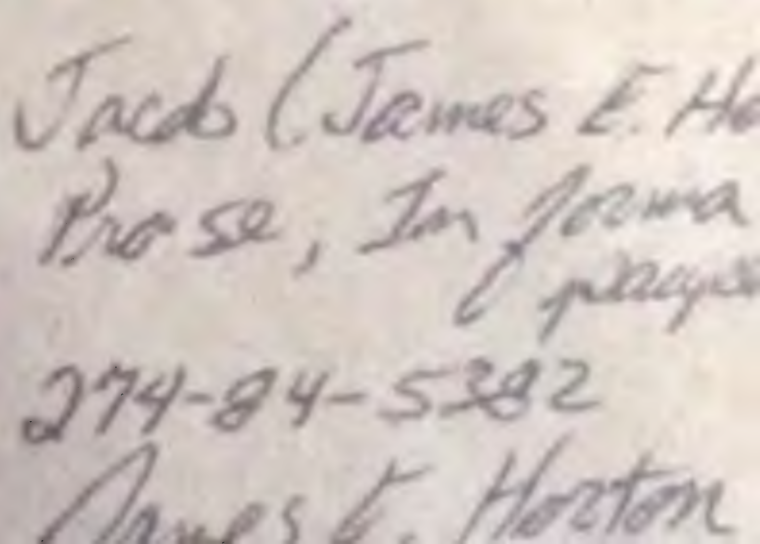 Jacob (James E. Ho
Pro se, In forma
274-84-5382
James E. Horton